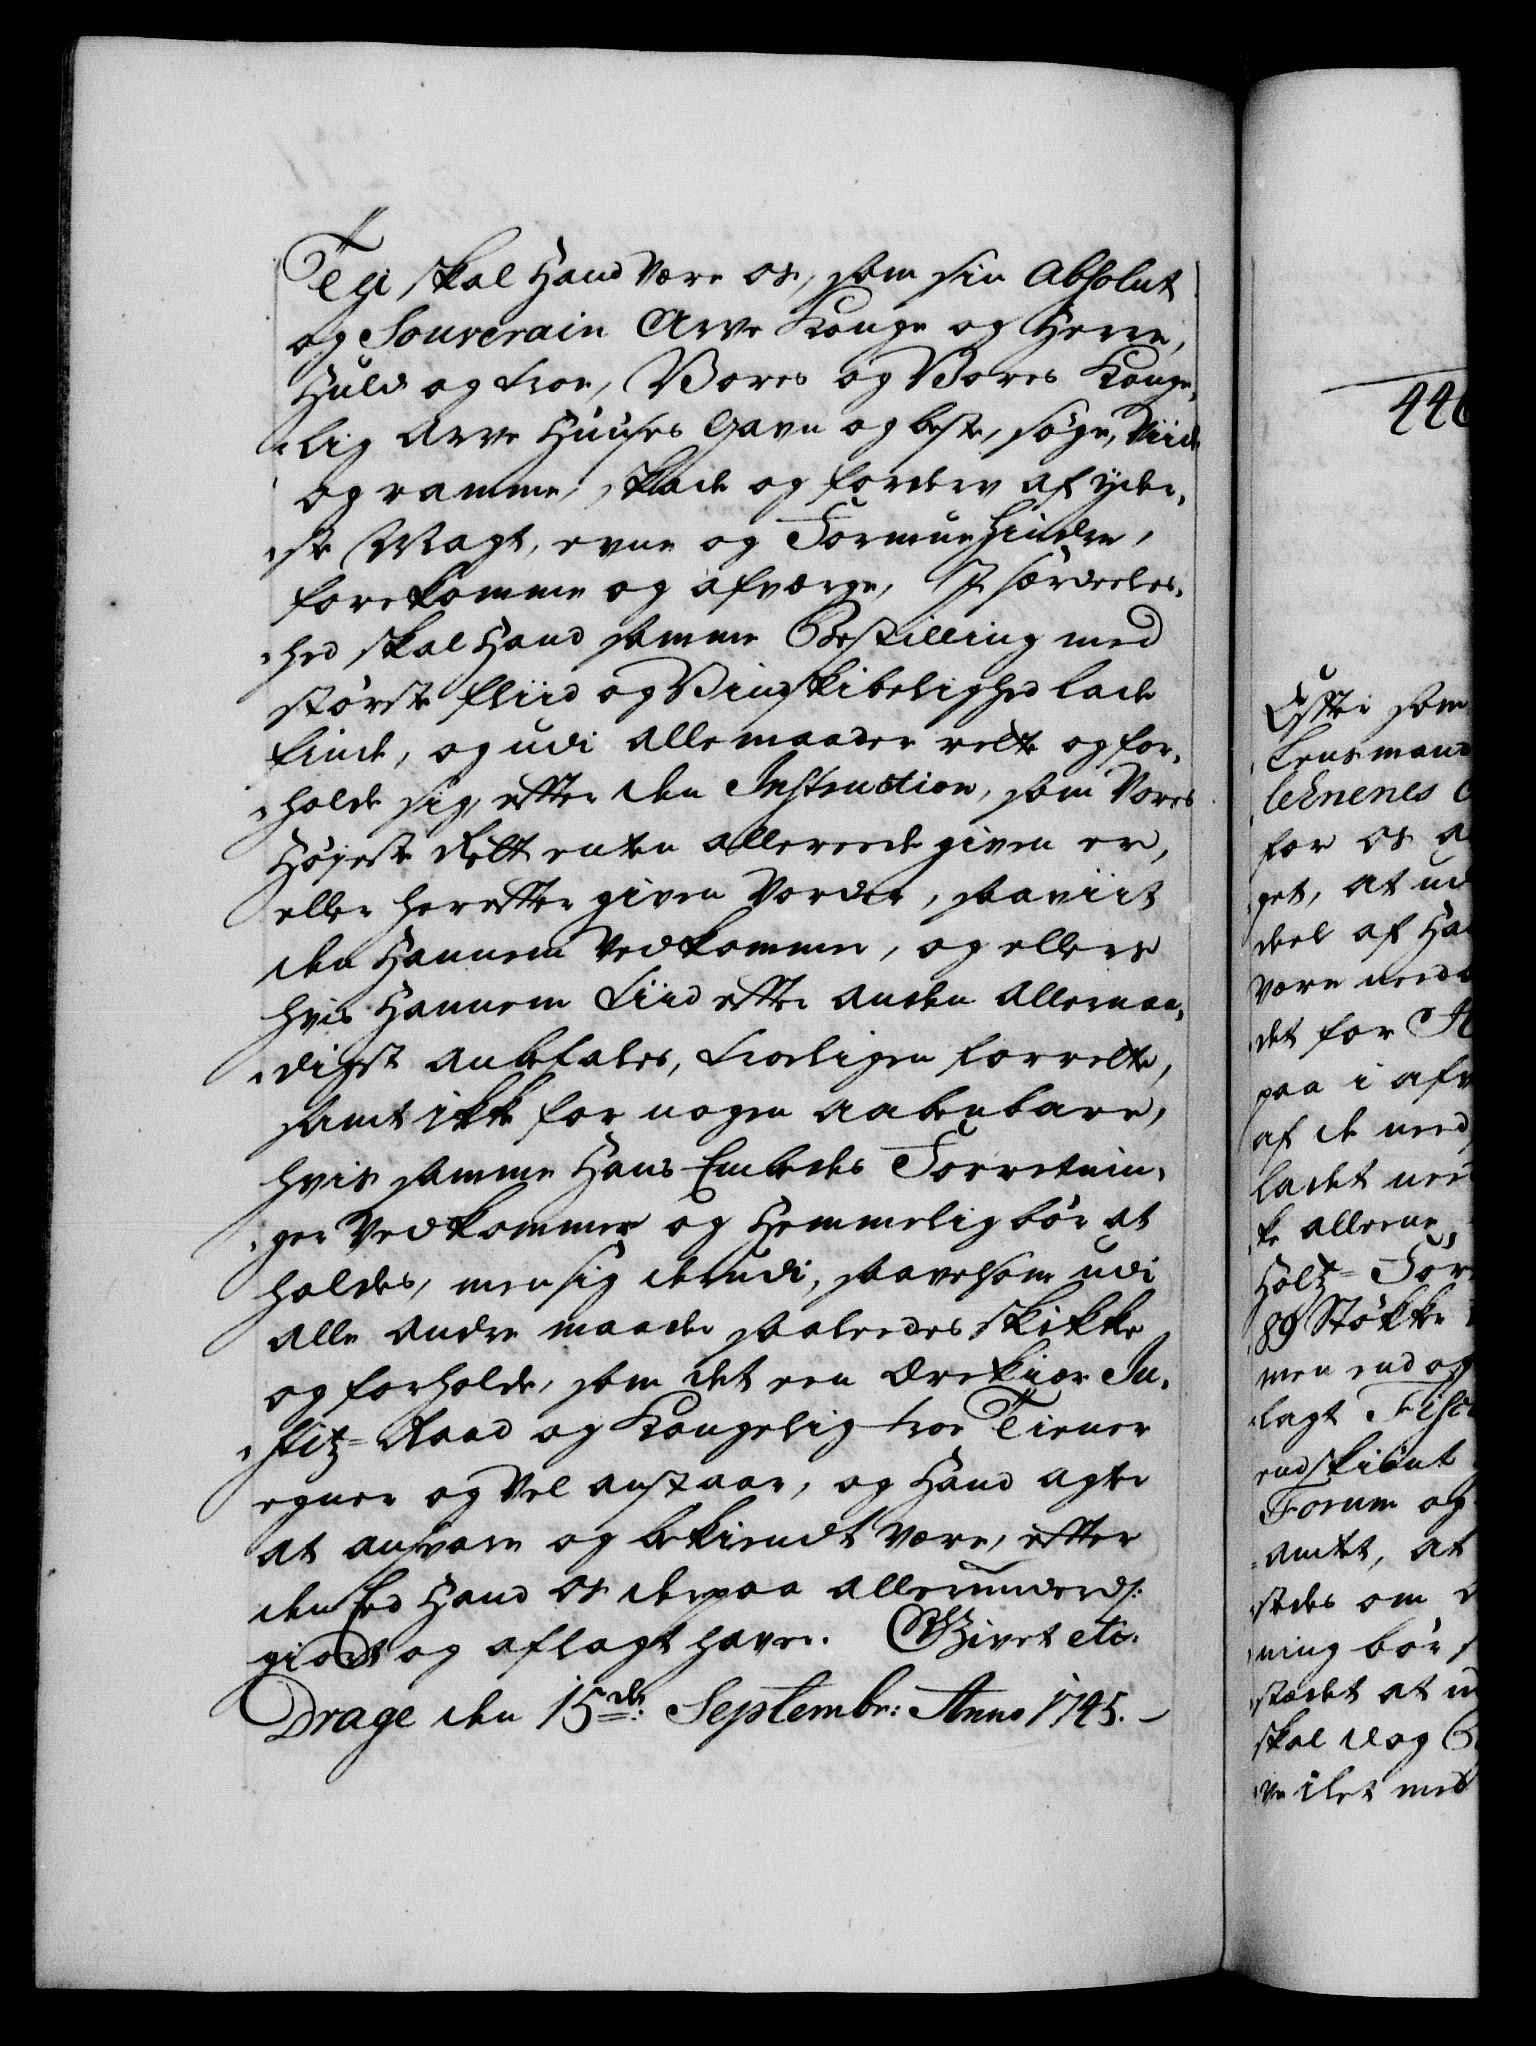 Thi skal Hand være os, som sin Absolut
og Souverain Arve Konge og Herre,
Huld og troe, Vores og Vores Konge,
lig Arve Huuses Gavn og beste, søge, Viide
og ramme, skade og forderv af yder,
ste Magt, evne og Formue hindre,
forekomme og afværge, J særdeles,
hed skal Hand samme Bestilling med
største fliid og Vindskibelighed lade
finde, og udi alle maader rette og for,
holde sig, effter den Instruction, som Vores
Høyeste Rett enten allereede given er,
eller hereffter given Vorder, saaviit
den Hannem Vedkommer, og ellers
hvis Hannem Tiid effter anden Allernaa,
digst anbefales, troeligen forrette,
samt ikke for nogen aabenbare,
hvis samme Hans Embedes Forretnin,
ger Vedkommer og Hemmelig bør at
holdes, men sig derudi, saavelsom udi
alle andre maader saaledes skikke
og forholde, som det een ærekiær Ju,
stitz-Raad og Kongelig troe Tiener
egner og Vel anstaar, og Hand agter
at ansvare og bekiendt være, effter
den Eed Hand os derpaa allerunderd:
giordt og aflagt haver. Givet etc.
Drage den 15de: Septembr: Anno 1745.
446
Effter som
Lensmand
lehnenes
for os a
get, at ud
deel af Ha
være need
det for
paa i afv
af de need
ladet need
ke alleene,
Holtz-For
89 Støkke
men endog
lagt Fisc
endskiønt
Forum og
amtet, at
stedes om
ning bør
stædet at u
skal dog
ve ilet med